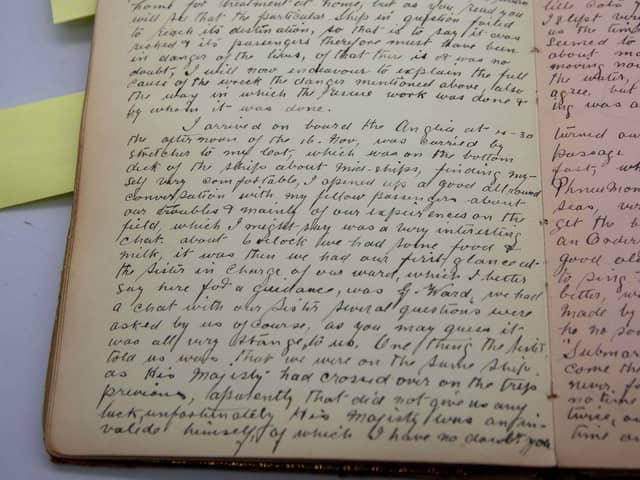 home for treatment at home, but as you read you
will see that the particular ship in question failed
to reach its destination, so that is to say it was
wrecked & its passengers therefore must have been
in danger of the lives, of that there is & was no
doubt, I will now endeavour to explain the full
cause of the wreck the danger mentioned above, also
the way in which the rescue work was done &
by whom it was done.
I arrived on board the Anglia at 11-30
the afternoon of the 16. Nov, was carried by
stretcher to my coat, which was on the bottom
dick of the ship about mid-ships, finding my-
self very comfortable, I opened up a good all round
conversation with my fellow passengers about
our troubles & mainly of our experiences on the
field, which I might say was a very interesting
chat. about 6 oclock we had some food &
milk, it was then we had our first glance at
the Sister in charge of our ward, which I better
say here for a guidance, was G. Ward, we had
a chat with our Sister several questions were
asked by us of course, as you may guess it
was all very strange to us. One thing the Sister
told us was that we were on the same ship
as His Majesty had crossed over on the trip
previous, apparently that did not give us any
luck, unfortunately His Majesty was an in-
valide himself, of which I have no doubt you
turned our
passage
fast, wh
seas, ver
get the b
good old
to sing
better, w
made by
he no soo
"Submar
come the
never f
no time
twice, o
time an